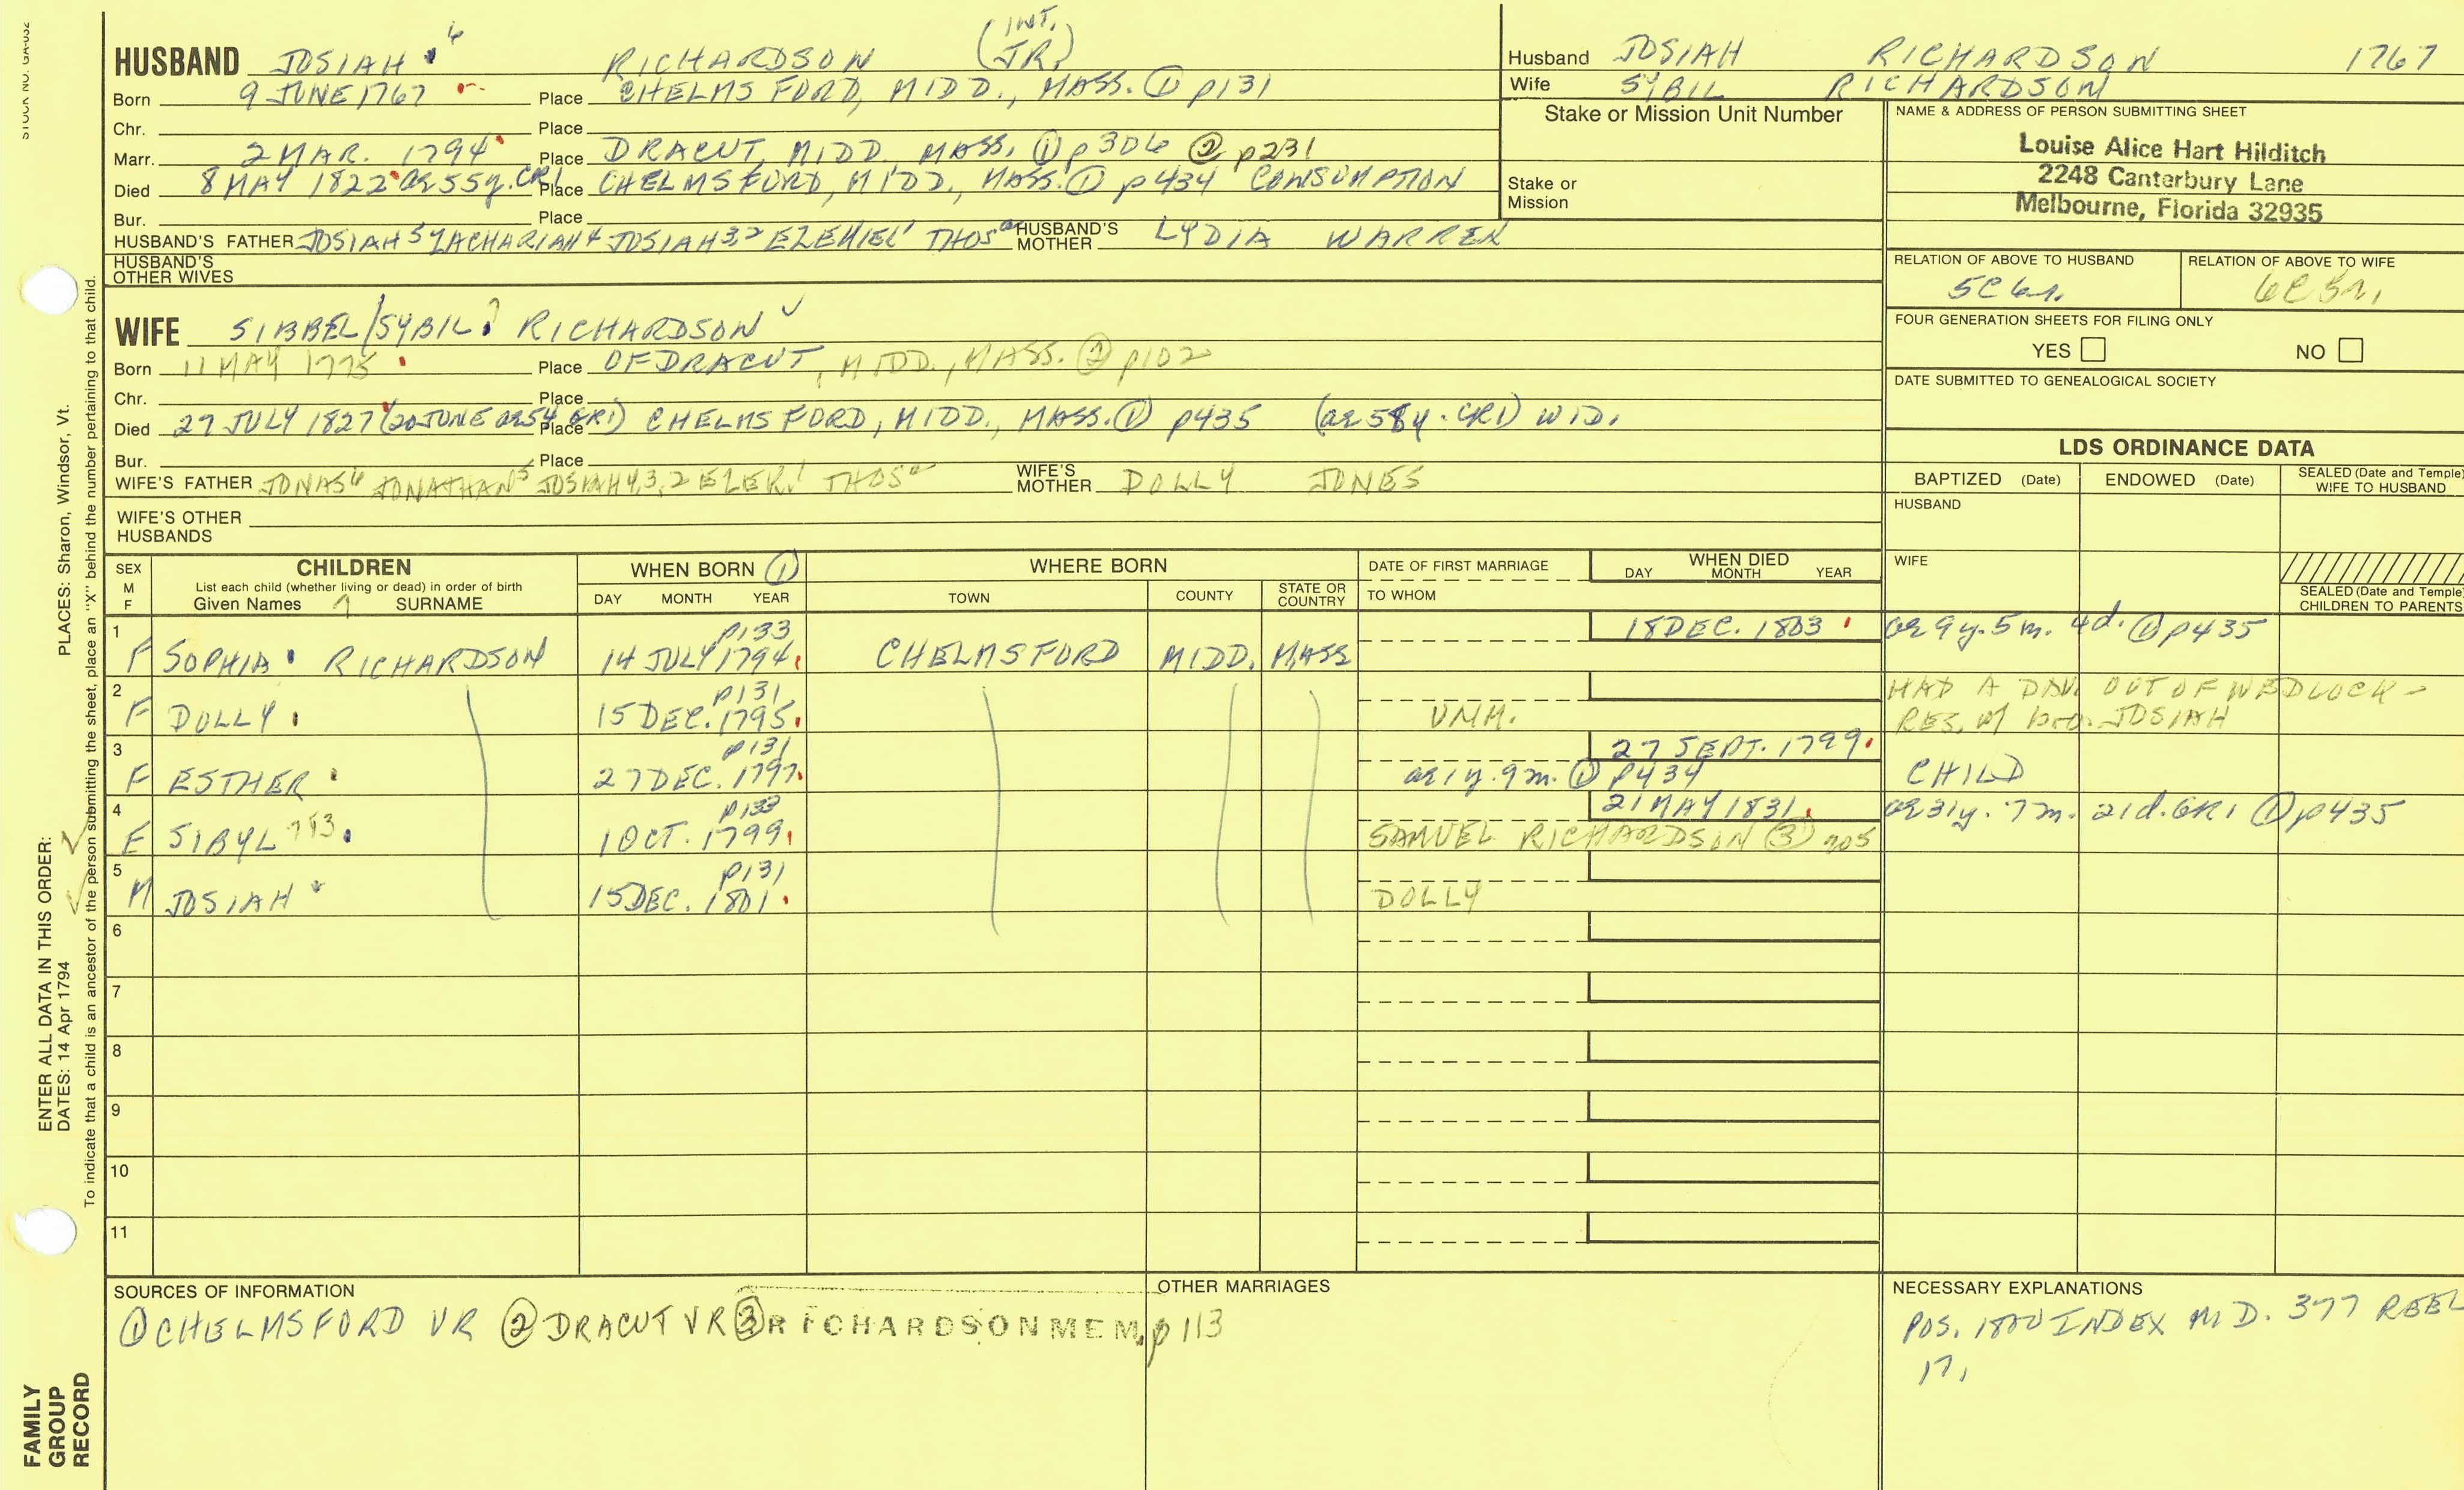 STOCK NO. GA-032
HUSBAND JOSIAH 6 RICHARDSON (INT. JR.)
Born 9 JUNE 1767 Place CHELMSFORD, MIDD., MASS. ① p131
Chr. Place
Marr. 2 MAR. 1794 Place DRACUT, MIDD. MASS. ① p306 ② p231
Died 8 MAY 1822 ae 55y. CR1 Place CHELMSFORD, MIDD., MASS. ① p434 CONSUMPTION
Bur. Place
HUSBAND'S FATHER JOSIAH 5 ZACHARIAH 4 JOSIAH 3,2 EZEKIEL 1 THOS a HUSBAND'S MOTHER LYDIA WARREN
HUSBAND'S OTHER WIVES
Husband JOSIAH RICHARDSON 1767
Wife SYBIL RICHARDSON
Stake or Mission Unit Number
Stake or Mission
NAME & ADDRESS OF PERSON SUBMITTING SHEET
Louise Alice Hart Hilditch
2248 Canterbury Lane
Melbourne, Florida 32935
RELATION OF ABOVE TO HUSBAND RELATION OF ABOVE TO WIFE
5C 6r. 6C 5r.
FOUR GENERATION SHEETS FOR FILING ONLY
YES NO
DATE SUBMITTED TO GENEALOGICAL SOCIETY
WIFE SIBBEL/SYBIL 7 RICHARDSON
Born 11 MAY 1775 Place OF DRACUT, MIDD., MASS. ② p102
Chr. Place
Died 29 JULY 1827 (20 JUNE ae 54 GR1) Place CHELMSFORD, MIDD., MASS. ① p435 (ae 58y. CR1) WID.
Bur. Place
WIFE'S FATHER JONAS 6 JONATHAN 5 JOSIAH 4,3,2 EZEK 1 THOS a WIFE'S MOTHER DOLLY JONES
WIFE'S OTHER HUSBANDS
LDS ORDINANCE DATA
BAPTIZED (Date) ENDOWED (Date) SEALED (Date and Temple) WIFE TO HUSBAND
HUSBAND
WIFE
SEALED (Date and Temple) CHILDREN TO PARENTS
SEX M F CHILDREN List each child (whether living or dead) in order of birth Given Names 7 SURNAME
WHEN BORN ① DAY MONTH YEAR
WHERE BORN TOWN COUNTY STATE OR COUNTRY
DATE OF FIRST MARRIAGE TO WHOM
WHEN DIED DAY MONTH YEAR
1 F SOPHIA RICHARDSON p133 14 JULY 1794 CHELMSFORD MIDD. MASS 18 DEC. 1803 ae 9y. 5m. 4d. ① p435
2 F DOLLY p131 15 DEC. 1795 UNM. HAD A DAU. OUT OF WEDLOCK - RES. w/ bro. JOSIAH
3 F ESTHER p131 27 DEC. 1797 ae 1y. 9m. ① p434 27 SEPT. 1799 CHILD
4 F SIBYL 793 p133 1 OCT. 1799 SAMUEL RICHARDSON ③ 705 21 MAY 1831 ae 31y. 7m. 21d. GR1 ① p435
5 M JOSIAH p131 15 DEC. 1801 DOLLY
6
7
8
9
10
11
SOURCES OF INFORMATION
① CHELMSFORD VR ② DRACUT VR ③ RICHARDSON MEM. p 113
OTHER MARRIAGES
NECESSARY EXPLANATIONS
POS. 1800 INDEX M D. 377 REEL
17,
ENTER ALL DATA IN THIS ORDER:
DATES: 14 Apr 1794 PLACES: Sharon, Windsor, Vt.
To indicate that a child is an ancestor of the person submitting the sheet, place an "X" behind the number pertaining to that child.
FAMILY
GROUP
RECORD